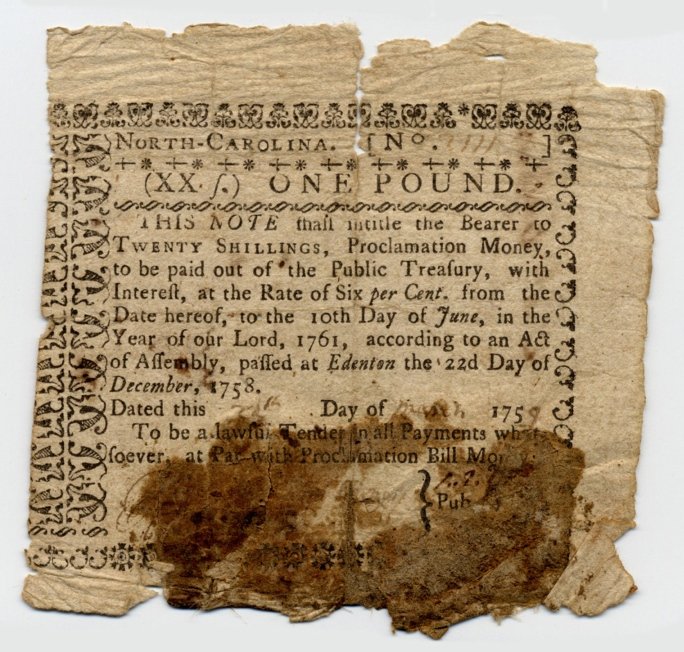 NORTH-CAROLINA. [No. ]
(XX ſ.) ONE POUND.
THIS NOTE ſhall intitle the Bearer to
TWENTY SHILLINGS, Proclamation Money,
to be paid out of the Public Treaſury, with
Intereſt, at the Rate of Six per Cent. from the
Date hereof, to the 10th Day of June, in the
Year of our Lord, 1761, according to an Act
of Aſſembly, paſſed at Edenton the 22d Day of
December, 1758.
Dated this Day of March 1759
To be a lawful Tender in all Payments what-
ſoever, at Par with Proclamation Bill Money.